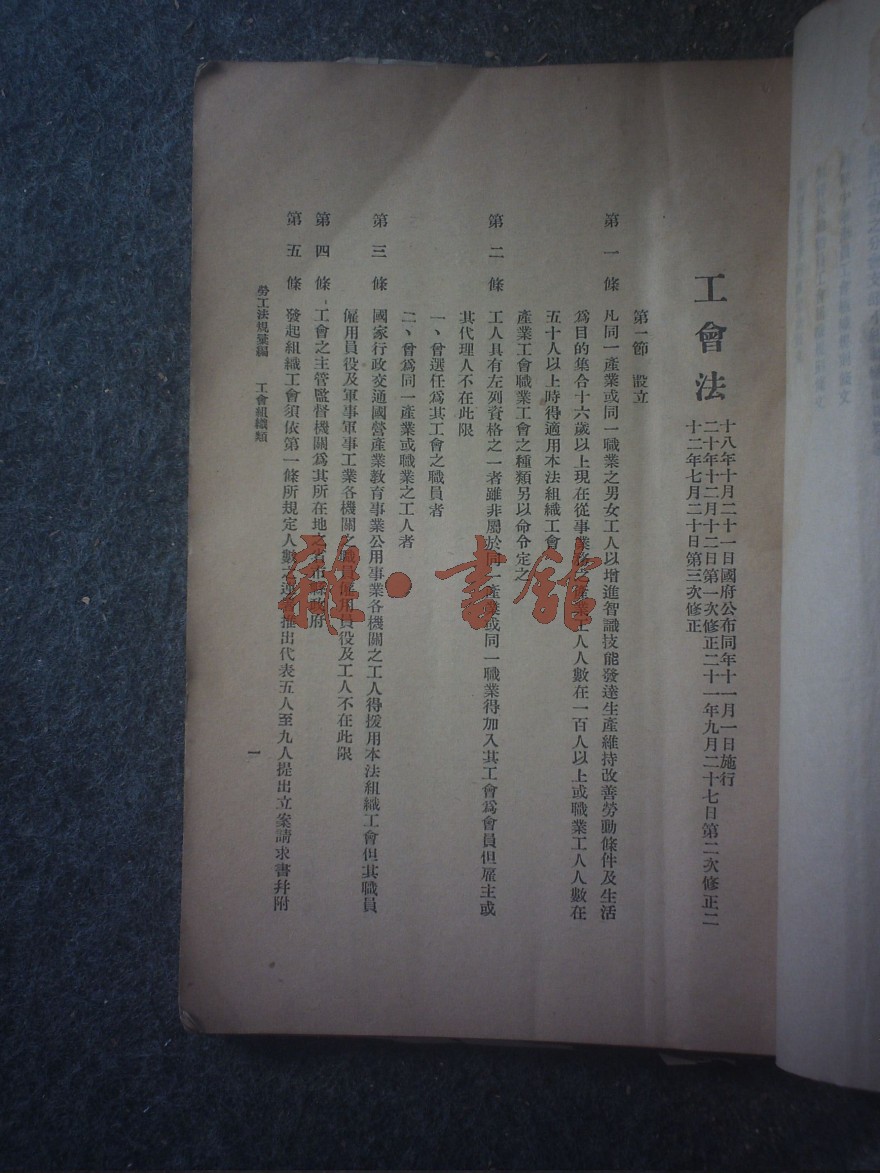 工會法
十八年十月二十一日國府公布同年十一月一日施行
二十年十二月十二日第一次修正二十一年九月二十七日第二次修正二
十二年七月二十日第三次修正
第一節 設立
第一條 凡同一產業或同一職業之男女工人以增進智識技能發達生產維持改善勞動條件及生活
爲目的集合十六歲以上現在從事業務之產業工人人數在一百人以上或職業工人人數在
五十人以上時得適用本法組織工會
產業工會職業工會之種類另以命令定之
第二條 工人具有左列資格之一者雖非屬於同一產業或同一職業得加入其工會爲會員但雇主或
其代理人不在此限
一、曾選任爲其工會之職員者
二、曾爲同一產業或職業之工人者
第三條 國家行政交通國營產業教育事業公用事業各機關之工人得援用本法組織工會但其職員
僱用員役及軍事軍事工業各機關之職員僱用員役及工人不在此限
第四條 工會之主管監督機關爲其所在地之省市縣政府
第五條 發起組織工會須依第一條所規定人數之連署推出代表五人至九人提出立案請求書幷附
勞工法規彙編 工會組織類
一
雜·書館